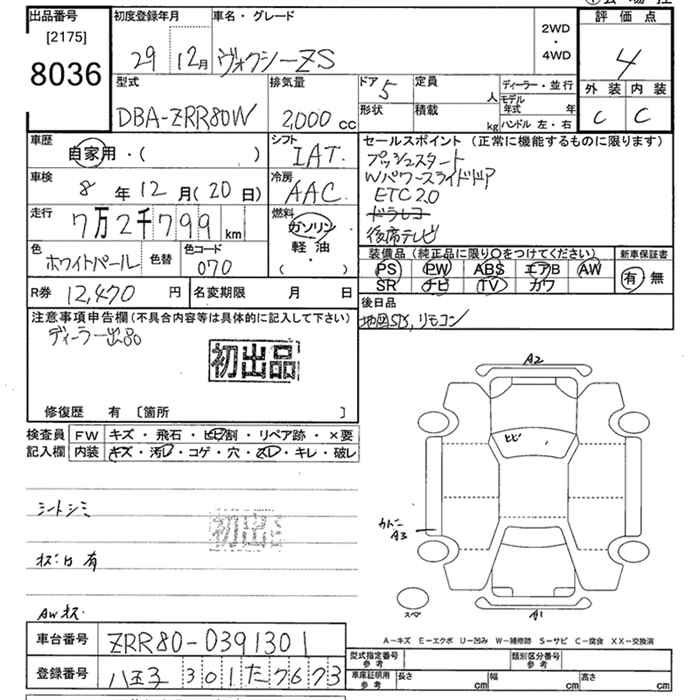 出品番号
[2175]
8036
初度登録年月
29 12月
車名・グレード
ヴォクシーZS
2WD
・
4WD
評価点
4
外装 内装
C C
型式
DBA-ZRR80W
排気量
2,000 cc
ドア 5
形状
定員 人
積載 kg
ディーラー・並行
モデル年式 年
ハンドル 左・右
車歴
自家用・( )
シフト
IAT
車検
8年12月(20日)
冷房
AAC
走行
7万2千799 km
燃料
ガソリン
軽油
・( )
色
ホワイトパール 色替
色コード
070
R券 12,470 円
名変期限 月 日
セールスポイント (正常に機能するものに限ります)
プッシュスタート
Wパワースライドドア
ETC2.0
ドラレコ
後席テレビ
装備品(純正品に限り○をつけてください)
PS PW ABS エアB AW
SR ナビ TV カワ
新車保証書
有 無
後日品
地図SD, リモコン
注意事項申告欄(不具合内容等は具体的に記入して下さい)
ディーラー出品
初出品
修復歴 有 〔箇所 〕
検査員
記入欄
FW キズ・飛石・ヒビ割・リペア跡・×要
内装 キズ・汚レ・コゲ・穴・スレ・キレ・破レ
シートシミ
初出品
ホズレ有
AWキズ
A2
ヒビ
カバー
A3
スペア
A1
A-キズ E-エクボ U-凹み W-補修跡 S-サビ C-腐食 XX-交換済
車台番号 ZRR80-0391301
登録番号 八王子 301 た 7673
型式指定番号
参考
類別区分番号
参考
車庫証明用
参考
長さ cm 幅 cm 高さ cm